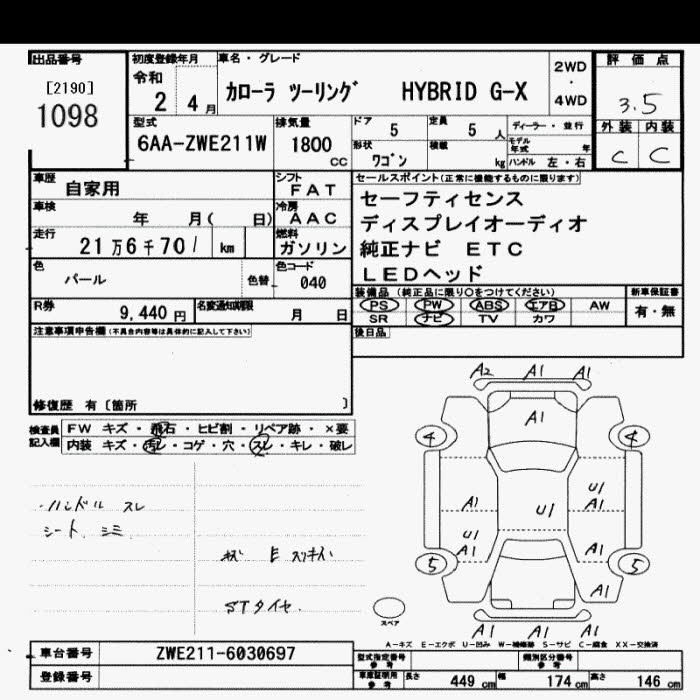 出品番号
[2190]
1098
初度登録年月
令和
2 4 月
車名・グレード
カローラ ツーリング HYBRID G-X
2WD
・
4WD
評価点
3.5
外装 内装
C C
型式
6AA-ZWE211W
排気量
1800
CC
ドア 5
定員 5 人
ディーラー・並行
形状 ワゴン
積載 kg
モデル年式 年
ハンドル 左・右
車歴 自家用
シフト FAT
車検 年 月( 日)
冷房 AAC
走行 21万6千701 km
燃料 ガソリン
色 パール
色替
色コード 040
R券 9,440 円
名変通知期限 月 日
セールスポイント(正常に機能するものに限ります)
セーフティセンス
ディスプレイオーディオ
純正ナビ ETC
LEDヘッド
装備品(純正品に限り○をつけてください)
PS PW ABS エアB AW
SR ナビ TV カワ
新車保証書
有・無
後日品
注意事項申告欄(不具合内容等は具体的に記入して下さい)
修復歴 有〔箇所 〕
検査員記入欄
FW キズ・飛石・ヒビ割・リペア跡・×要
内装 キズ・汚レ・コゲ・穴・スレ・キレ・破レ
・ハンドル スレ
シート シミ
STタイヤ.
A2 A1 A1
A1
4 4
U1
A1 U1 A1
U1
A1 A1
5 5
A1
A1 A1 A1
スペア
A-キズ E-エクボ U-凹み W-補修跡 S-サビ C-腐食 XX-交換済
車台番号 ZWE211-6030697
登録番号
型式指定番号 参考
類別区分番号 参考
車庫証明用 参考
長さ 449 cm 幅 174 cm 高さ 146 cm